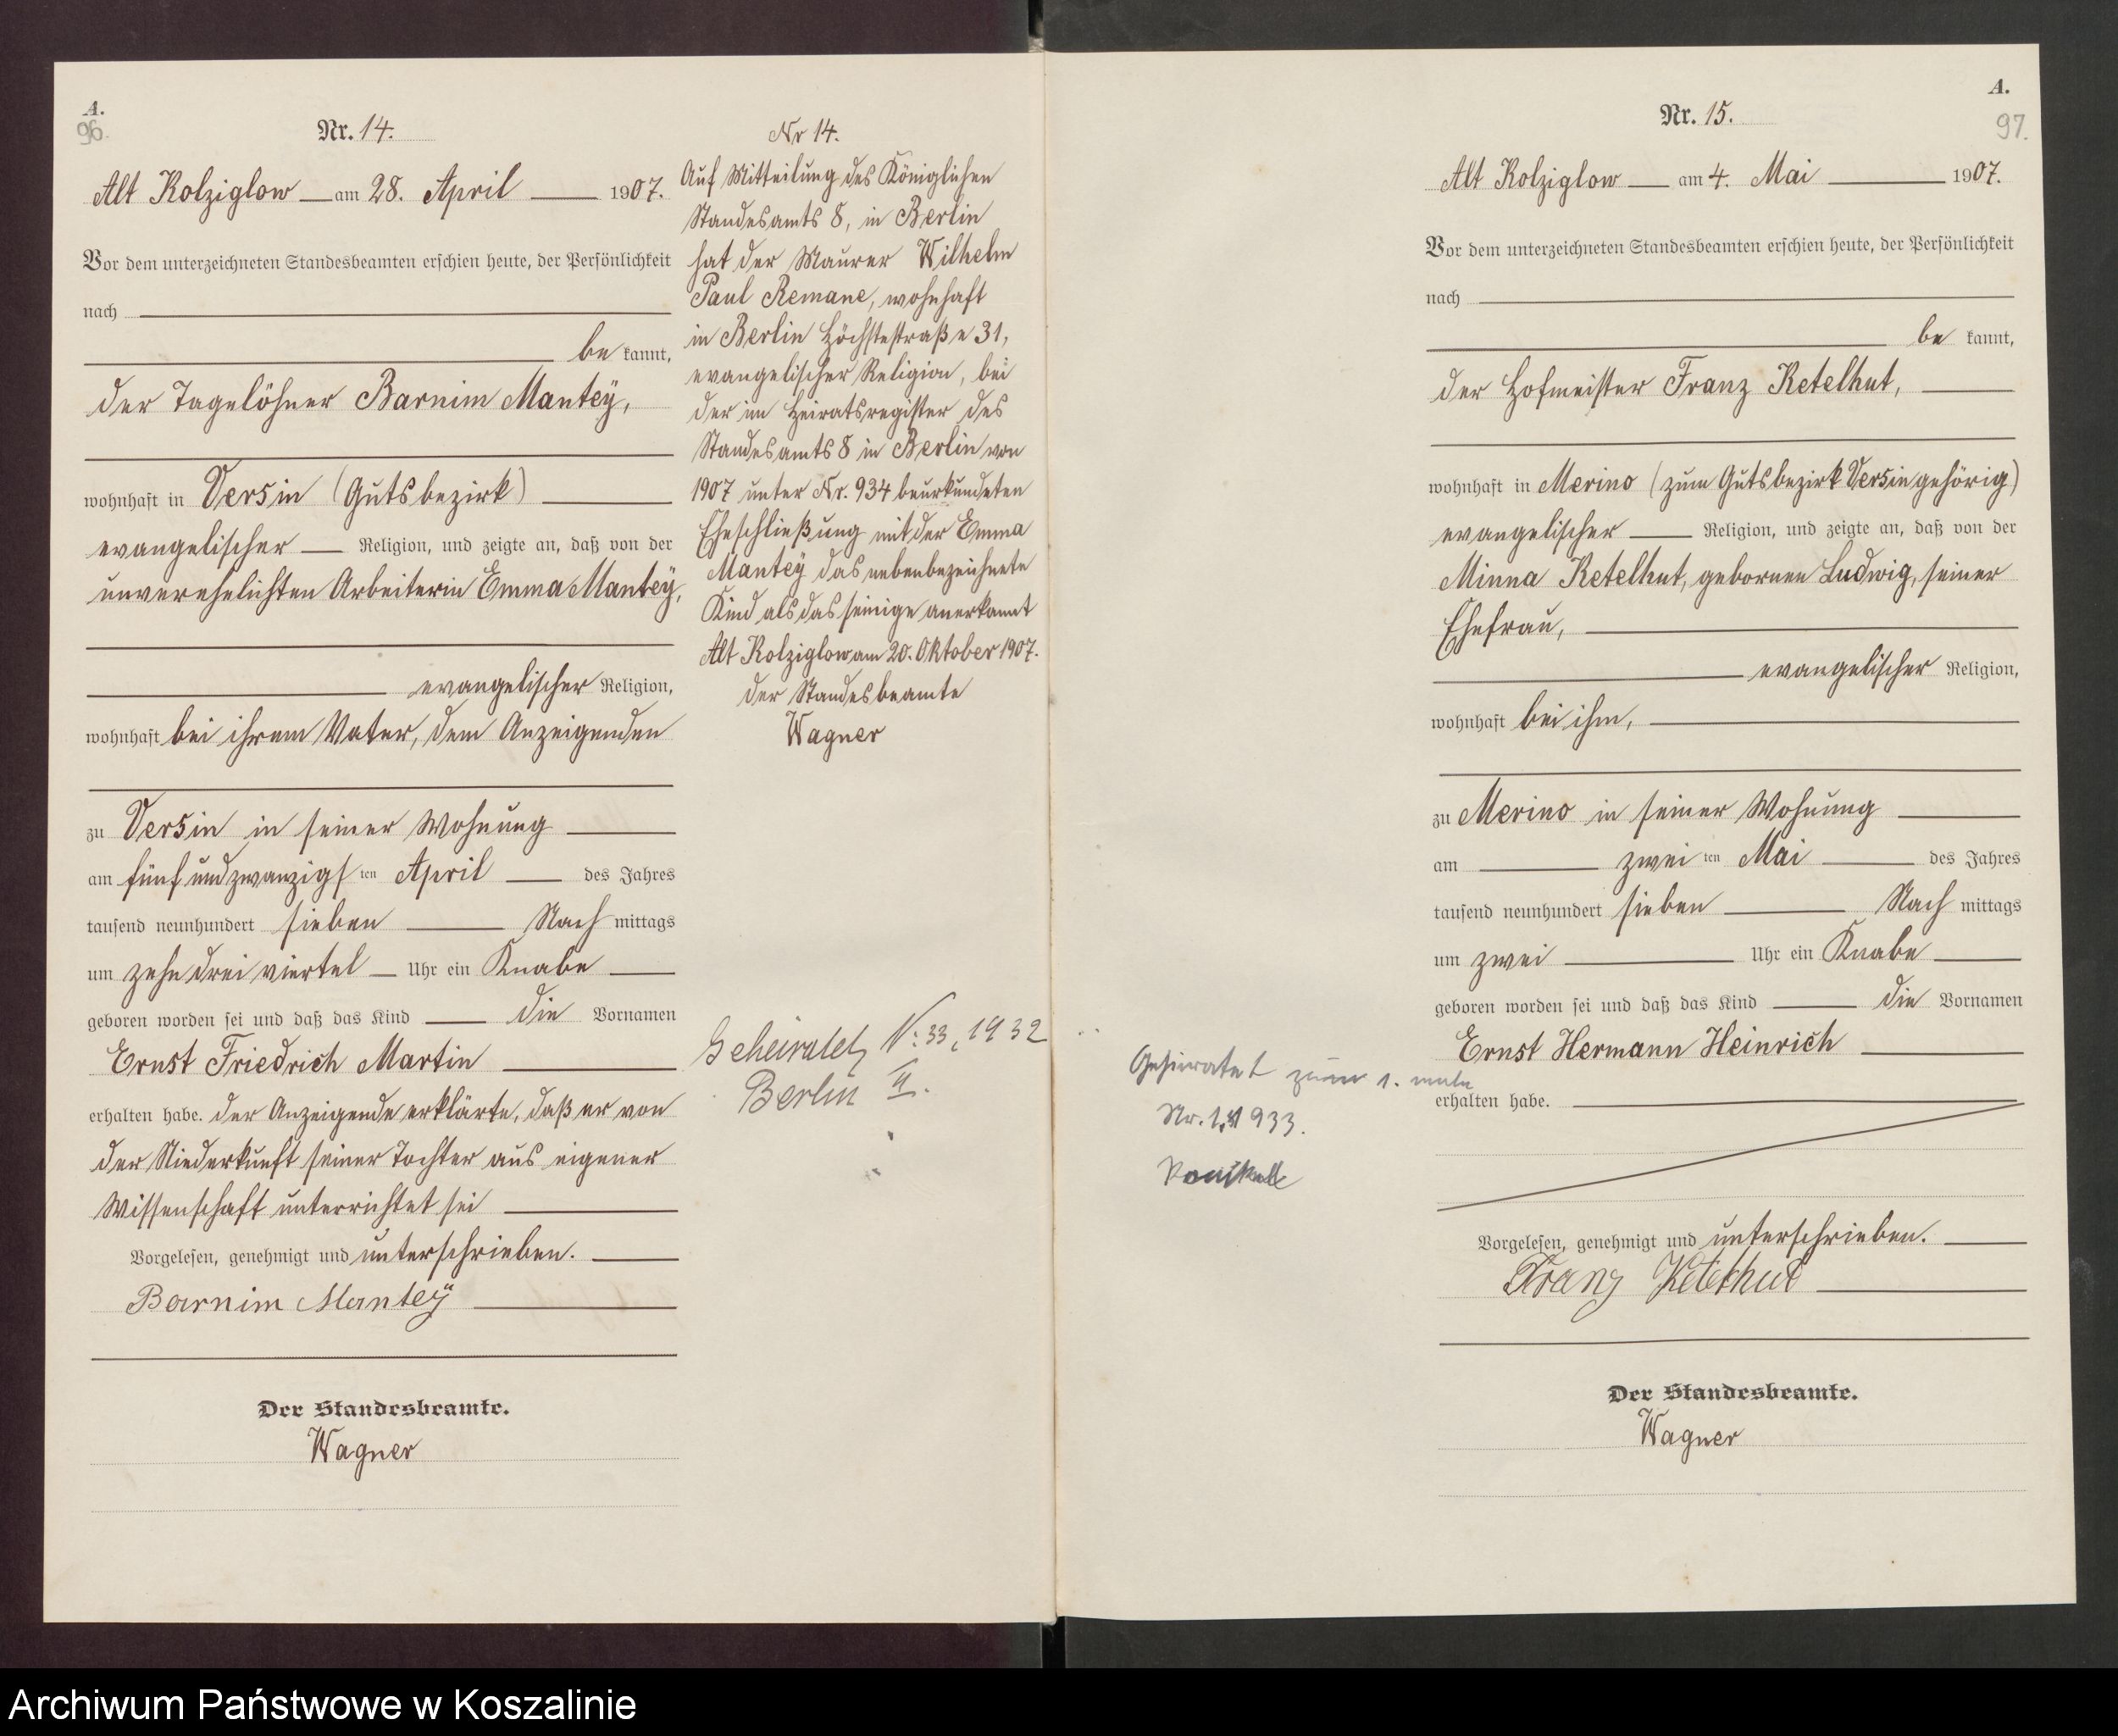 A.
96.
Nr. 14.
Alt Kolziglow am 28. April 1907.
Vor dem unterzeichneten Standesbeamten erschien heute, der Persönlichkeit
nach
be kannt,
der Tagelöhner Barnim Mantey,
wohnhaft in Versin (Gutsbezirk)
evangelischer Religion, und zeigte an, daß von der
unverehelichten Arbeiterin Emma Mantey,
evangelischer Religion,
wohnhaft bei ihrem Vater, dem Anzeigenden
zu Versin in seiner Wohnung
am fünfundzwanzigsten April des Jahres
tausend neunhundert sieben Nach mittags
um zehn drei viertel Uhr ein Knabe
geboren worden sei und daß das Kind die Vornamen
Ernst Friedrich Martin
erhalten habe. Der Anzeigende erklärte, daß er von
der Niederkunft seiner Tochter aus eigener
Wissenschaft unterrichtet sei
Vorgelesen, genehmigt und unterschrieben.
Barnim Mantey
Der Standesbeamte.
Wagner
Nr 14.
Auf Mitteilung des Königlichen
Standesamts 8, in Berlin
hat der Maurer Wilhelm
Paul Remane, wohnhaft
in Berlin Höchstestraße 31,
evangelischer Religion, bei
der im Heiratsregister des
Standesamts 8 in Berlin von
1907 unter Nr. 934 beurkundeten
Eheschließung mit der Emma
Mantey das nebenbezeichnete
Kind als das seinige anerkannt
Alt Kolziglow am 20. Oktober 1907.
der Standesbeamte
Wagner
Geheiratet, N: 33, 1932
Berlin II.
A.
97.
Nr. 15.
Alt Kolziglow am 4. Mai 1907.
Vor dem unterzeichneten Standesbeamten erschien heute, der Persönlichkeit
nach
be kannt,
der Hofmeister Franz Ketelhut,
wohnhaft in Merino (zum Gutsbezirk Versin gehörig)
evangelischer Religion, und zeigte an, daß von der
Minna Ketelhut, gebornen Ludwig, seiner
Ehefrau,
evangelischer Religion,
wohnhaft bei ihm,
zu Merino in seiner Wohnung
am zweiten Mai des Jahres
tausend neunhundert sieben Nach mittags
um zwei Uhr ein Knabe
geboren worden sei und daß das Kind die Vornamen
Ernst Hermann Heinrich
erhalten habe.
Vorgelesen, genehmigt und unterschrieben.
Franz Ketelhut
Der Standesbeamte.
Wagner
Geheiratet zum 1. male
Nr. 1, 1933.
Archiwum Państwowe w Koszalinie